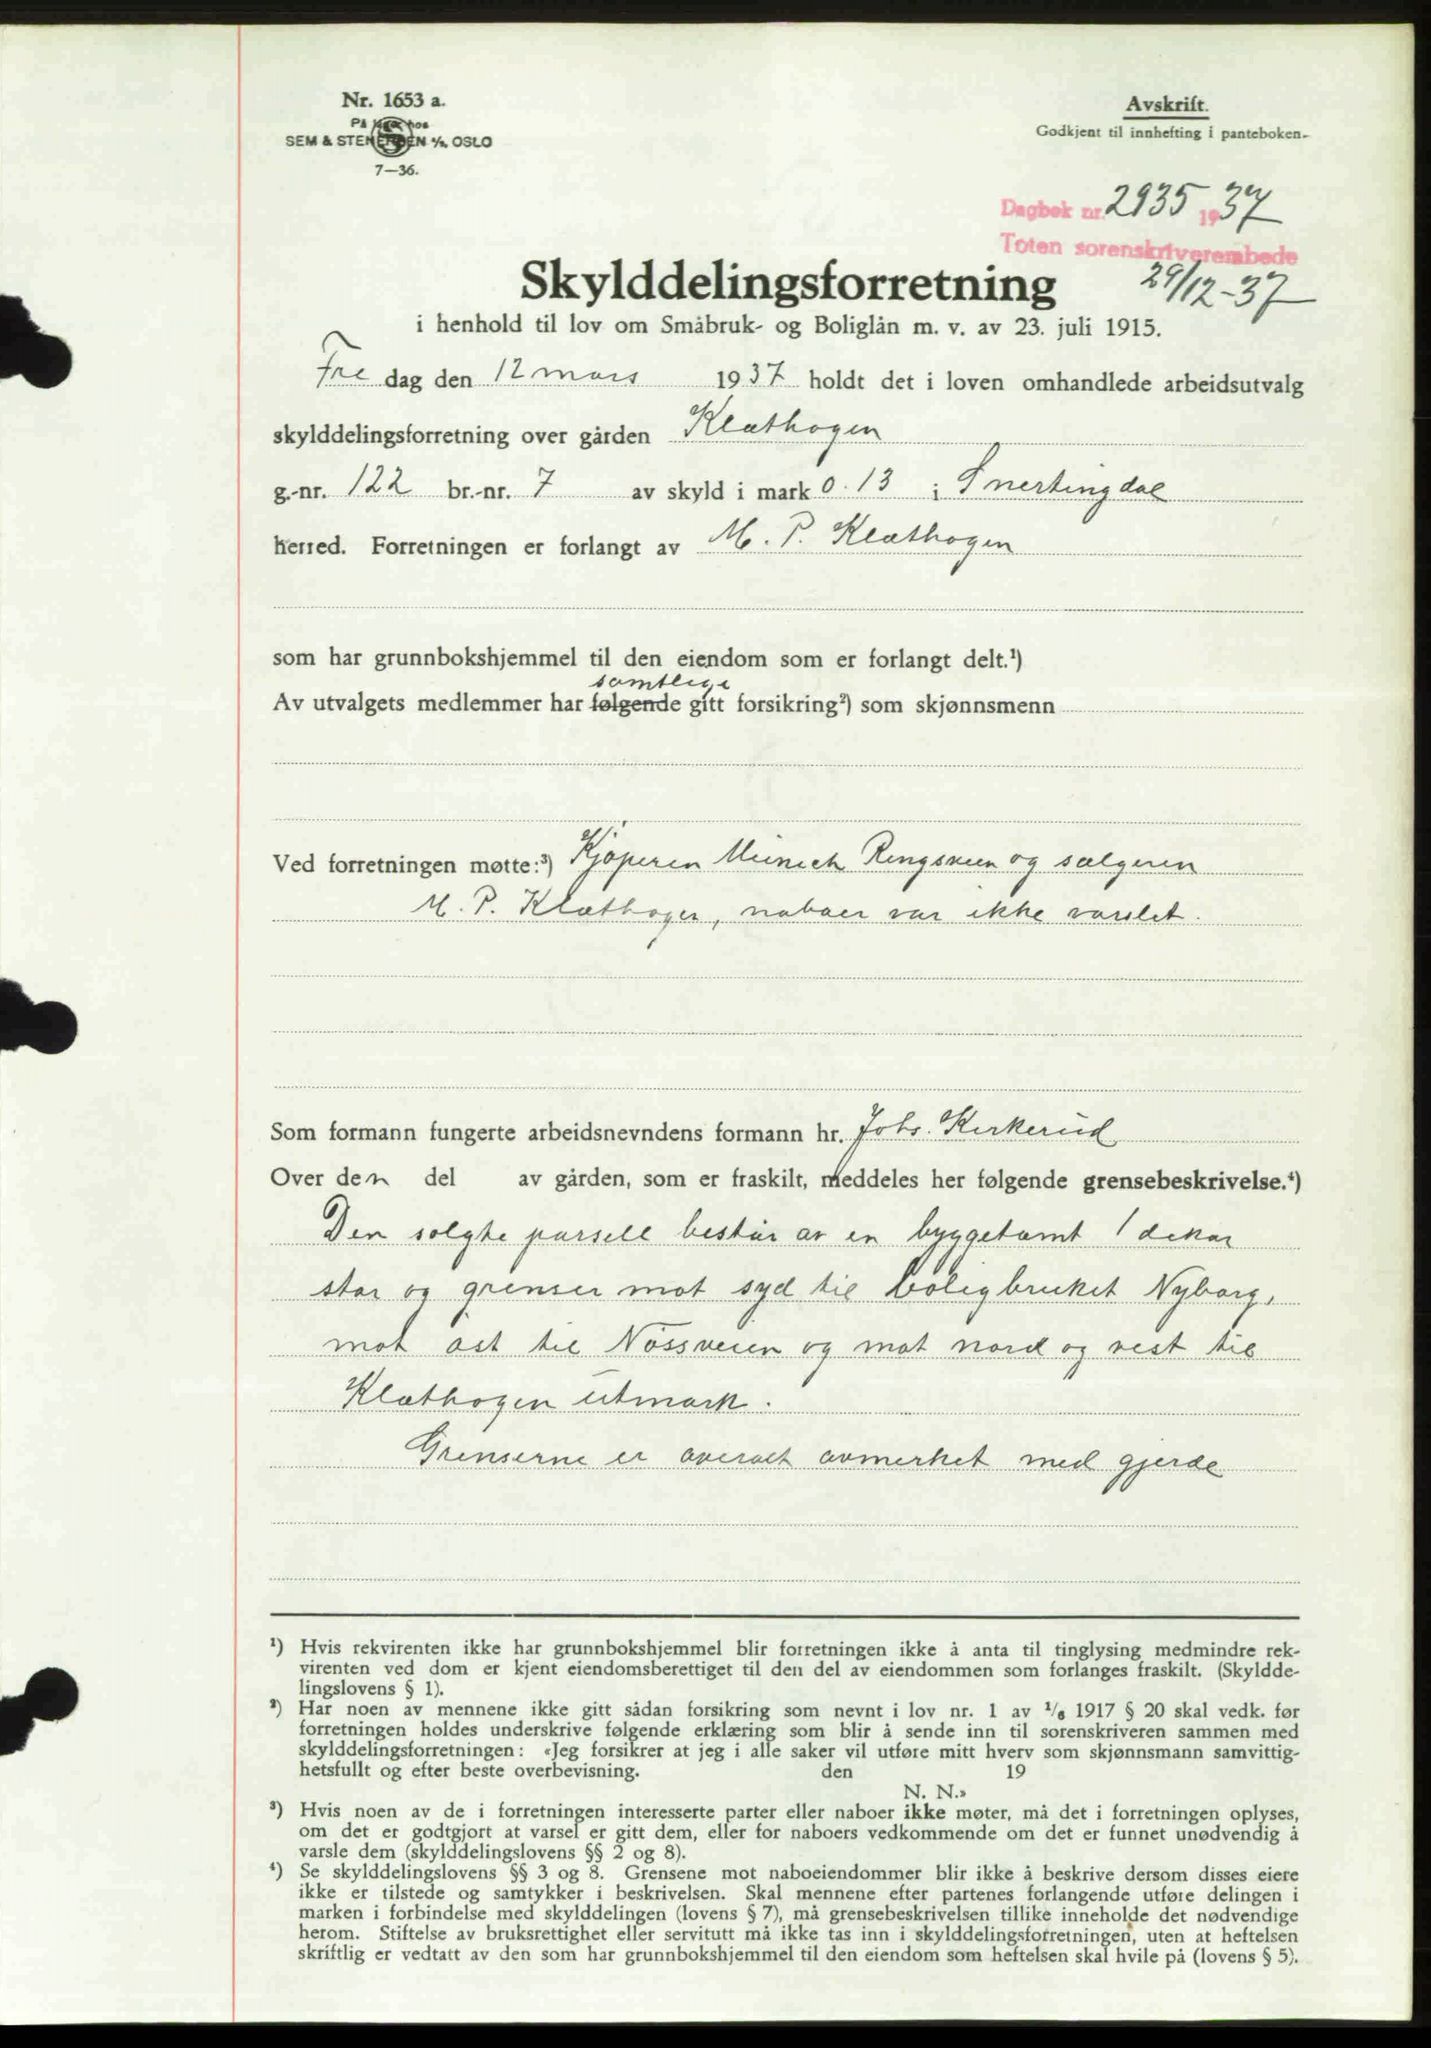 Nr. 1653 a.
På lager hos
SEM & STENERSEN A/S, OSLO
7—36.
Avskrift.
Godkjent til innhefting i panteboken.
Dagbok nr. 2935 1937
Toten sorenskriverembede
29/12-37
Skylddelingsforretning
i henhold til lov om Småbruk- og Boliglån m. v. av 23. juli 1915.
Fre dag den 12 mars 1937 holdt det i loven omhandlede arbeidsutvalg
skylddelingsforretning over gården Klæthagen
g.-nr. 122 br.-nr. 7 av skyld i mark 0.13 i Snertingdal
herred. Forretningen er forlangt av M. P. Klæthagen
som har grunnbokshjemmel til den eiendom som er forlangt delt.¹)
samtlige
Av utvalgets medlemmer har følgende gitt forsikring²) som skjønnsmenn
Ved forretningen møtte:³) Kjøperen Ringsveen og sælgeren
M. P. Klæthagen, naboer var ikke varslet.
Som formann fungerte arbeidsnevndens formann hr. Johs. Kirkerud
Over den del av gården, som er fraskilt, meddeles her følgende grensebeskrivelse.⁴)
Den solgte parsell består av en byggetomt 1 dekar
stor og grenser mot syd til boligbruket Nyborg,
mot øst til Nössveien og mot nord og vest til
Klæthagen utmark.
Grenserne er overalt avmerket med gjerde
¹) Hvis rekvirenten ikke har grunnbokshjemmel blir forretningen ikke å anta til tinglysing medmindre rek-
virenten ved dom er kjent eiendomsberettiget til den del av eiendommen som forlanges fraskilt. (Skyldde-
lingslovens § 1).
²) Har noen av mennene ikke gitt sådan forsikring som nevnt i lov nr. 1 av 1/6 1917 § 20 skal vedk. før
forretningen holdes underskrive følgende erklæring som blir å sende inn til sorenskriveren sammen med
skylddelingsforretningen: «Jeg forsikrer at jeg i alle saker vil utføre mitt hverv som skjønnsmann samvittig-
hetsfullt og efter beste overbevisning. den 19
N. N.»
³) Hvis noen av de i forretningen interesserte parter eller naboer ikke møter, må det i forretningen oplyses,
om det er godtgjort at varsel er gitt dem, eller for naboers vedkommende om det er funnet unødvendig å
varsle dem (skylddelingslovens §§ 2 og 8).
⁴) Se skylddelingslovens §§ 3 og 8. Grensene mot naboeiendommer blir ikke å beskrive dersom disses eiere
ikke er tilstede og samtykker i beskrivelsen. Skal mennene efter partenes forlangende utføre delingen i
marken i forbindelse med skylddelingen (lovens § 7), må grensebeskrivelsen tillike inneholde det nødvendige
herom. Stiftelse av bruksrettighet eller servitutt må ikke tas inn i skylddelingsforretningen, uten at heftelsen
skriftlig er vedtatt av den som har grunnbokshjemmel til den eiendom som heftelsen skal hvile på (lovens § 5).